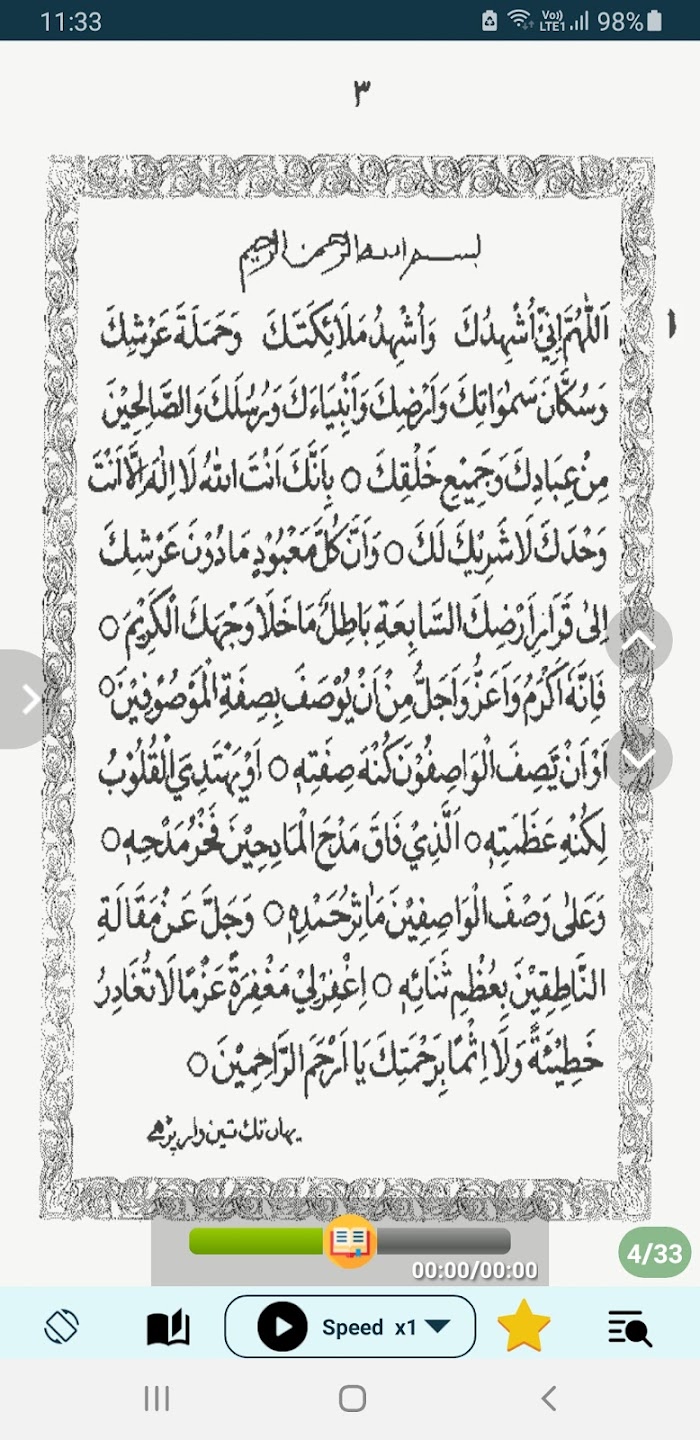 11:33
Vo)) LTE1 98%
٣
بسم الله الرحمن الرحيم
اَللّٰهُمَّ اِنِّيْ اُشْهِدُكَ وَاُشْهِدُ مَلَائِكَتَكَ وَحَمَلَةَ عَرْشِكَ
١
وَسُكَّانَ سَمٰوَاتِكَ وَاَرْضِكَ وَاَنْبِيَاءَكَ وَرُسُلَكَ وَالصَّالِحِيْنَ
مِنْ عِبَادِكَ وَجَمِيْعِ خَلْقِكَ ○ بِاَنَّكَ اَنْتَ اللهُ لَا اِلٰهَ اِلَّا اَنْتَ
وَحْدَكَ لَا شَرِيْكَ لَكَ ○ وَاَنَّ كُلَّ مَعْبُوْدٍ مَادُوْنَ عَرْشِكَ
اِلىٰ قَرَارِ اَرْضِكَ السَّابِعَةِ بَاطِلٌ مَاخَلَا وَجْهَكَ الْكَرِيْمَ ○
فَاِنَّهُ اَكْرَمُ وَاَعَزُّ وَاَجَلُّ مِنْ اَنْ يُوْصَفَ بِصِفَةِ الْمَوْصُوْفِيْنَ ○
اَوْ اَنْ يَصِفَ الْوَاصِفُوْنَ كُنْهَ صِفَتِهٖ ○ اَوْ يَهْتَدِيَ الْقُلُوْبُ
لِكُنْهِ عَظَمَتِهٖ ○ اَلَّذِيْ فَاقَ مَدْحَ الْمَادِحِيْنَ فَخْرُ مَدْحِهٖ ○
وَعَلىٰ وَصْفَ الْوَاصِفِيْنَ مَاٰثِرُ حَمْدِهٖ ○ وَجَلَّ عَنْ مَقَالَةِ
النَّاطِقِيْنَ بِعُظْمِ ثَنَائِهٖ ○ اِغْفِرْلِيْ مَغْفِرَةً عَزْمًا لَا تُغَادِرُ
خَطِيْئَةً وَلَا اِثْمًا بِرَحْمَتِكَ يَا اَرْحَمَ الرَّاحِمِيْنَ ○
یہاں تک تین وار پڑھے
00:00/00:00
4/33
Speed x1